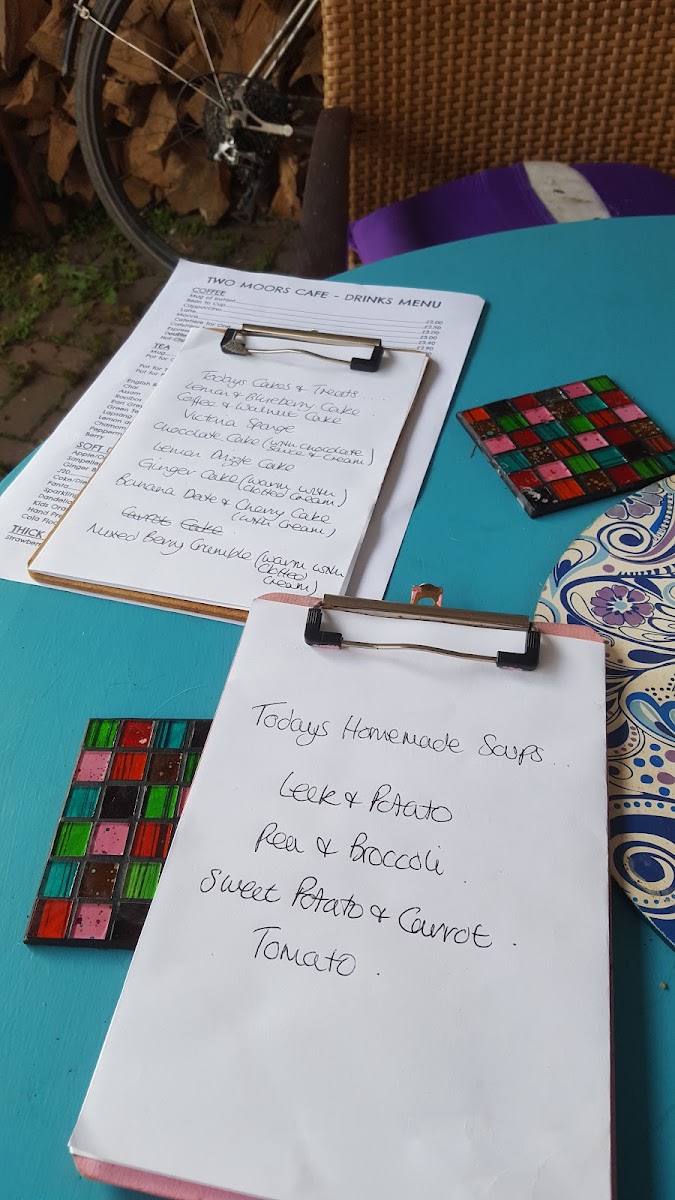 TWO MOORS CAFE - DRINKS MENU
COFFEE
Mug of Instant
Bean to Cup
Cappuccino
Latte
Mocha
Cafetiere for One
TEA
Mug
Pot for
Pot for
Pot for
English B
Chai
Assam
Rooibos
Earl Grey
Green Te
Lapsang
Lemon a
Chamom
Pepperm
Berry
SOFT
Apple/O
Sanpelle
Ginger B
J20
Coke/Die
Fanta
Sparkling
Dandelio
Kids Ora
Hans Pre
Cola Floa
THICK
Strawberr
Todays Cakes & Treats....
Lemon & Blueberry Cake
Coffee & Walnut Cake
Victoria Sponge
Chocolate Cake (with chocolate
Sauce & Cream)
Lemon Drizzle Cake
Ginger Cake (warm with
Clotted Cream)
Banana Date & Cherry Cake
(with Cream)
Carrot Cake
Mixed Berry Crumble (warm with
Clotted
Cream)
Todays Homemade Soups...
Leek & Potato
Pea & Broccoli.
Sweet Potato & Carrot.
Tomato.